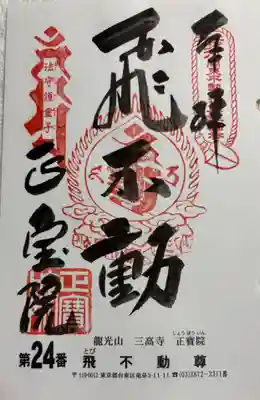 奉拝
飛不動
正宝院
法守護童子
正寶院
しょうぼういん
龍光山 三高寺 正寶院
とび
第24番 飛不動尊
〒110-0012 東京都台東区竜泉3-11-11 ☎(03)3872-3311番